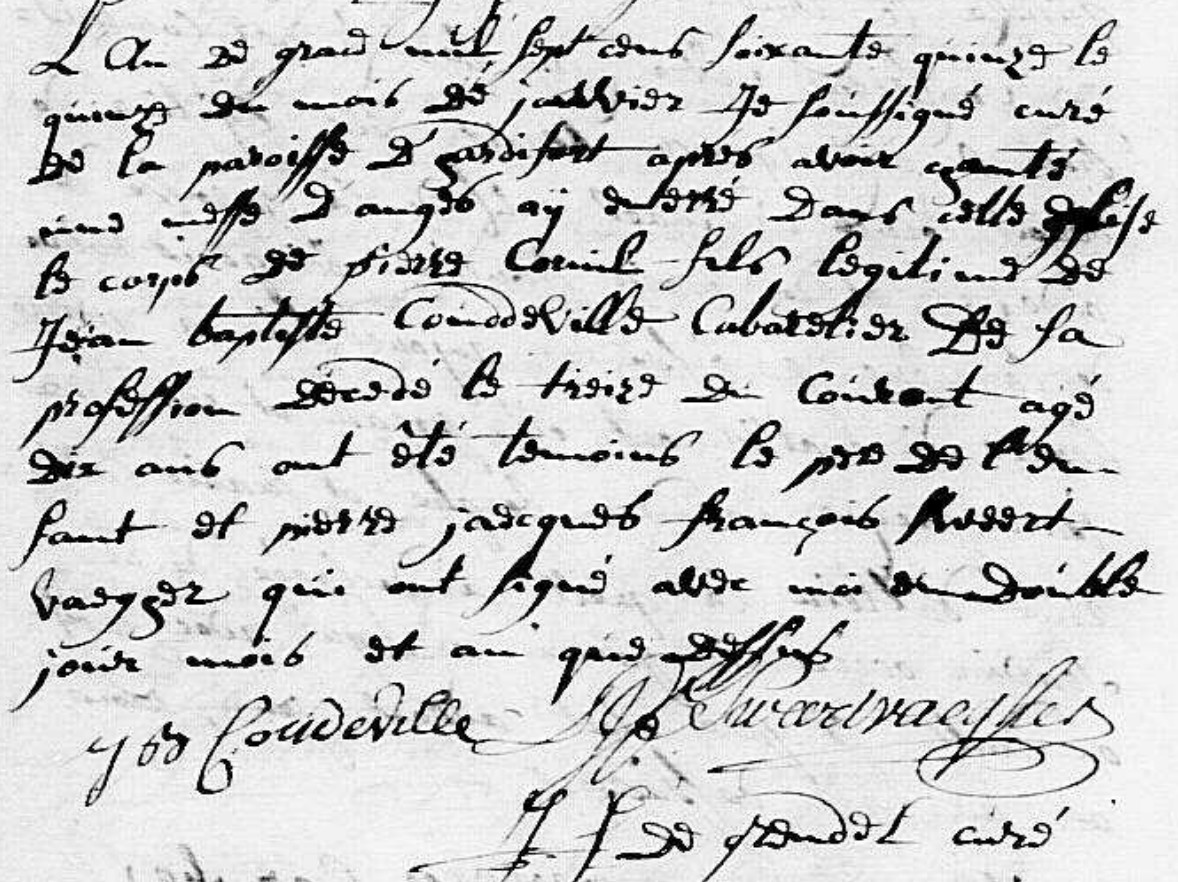 L An de grace mil sept cens soixante quinze le
quinze du mois de janvier Je soussigné curé
de la paroisse d'hardifort apres avoir chanté
une messe d anges ay enterré dans cette Eglise
le corps de pierre Cornil fils legitime de
Jean baptiste Couddeville Cabaretier De sa
profession décedé le treize du Courant agé
dix ans ont été temoins le pere de l'en
fant et pierre jaecques françois Sweert
vaegher qui ont signé avec moi en double
jour mois et an que dessus
Coudeville Sweertvaegher
De grendel curé